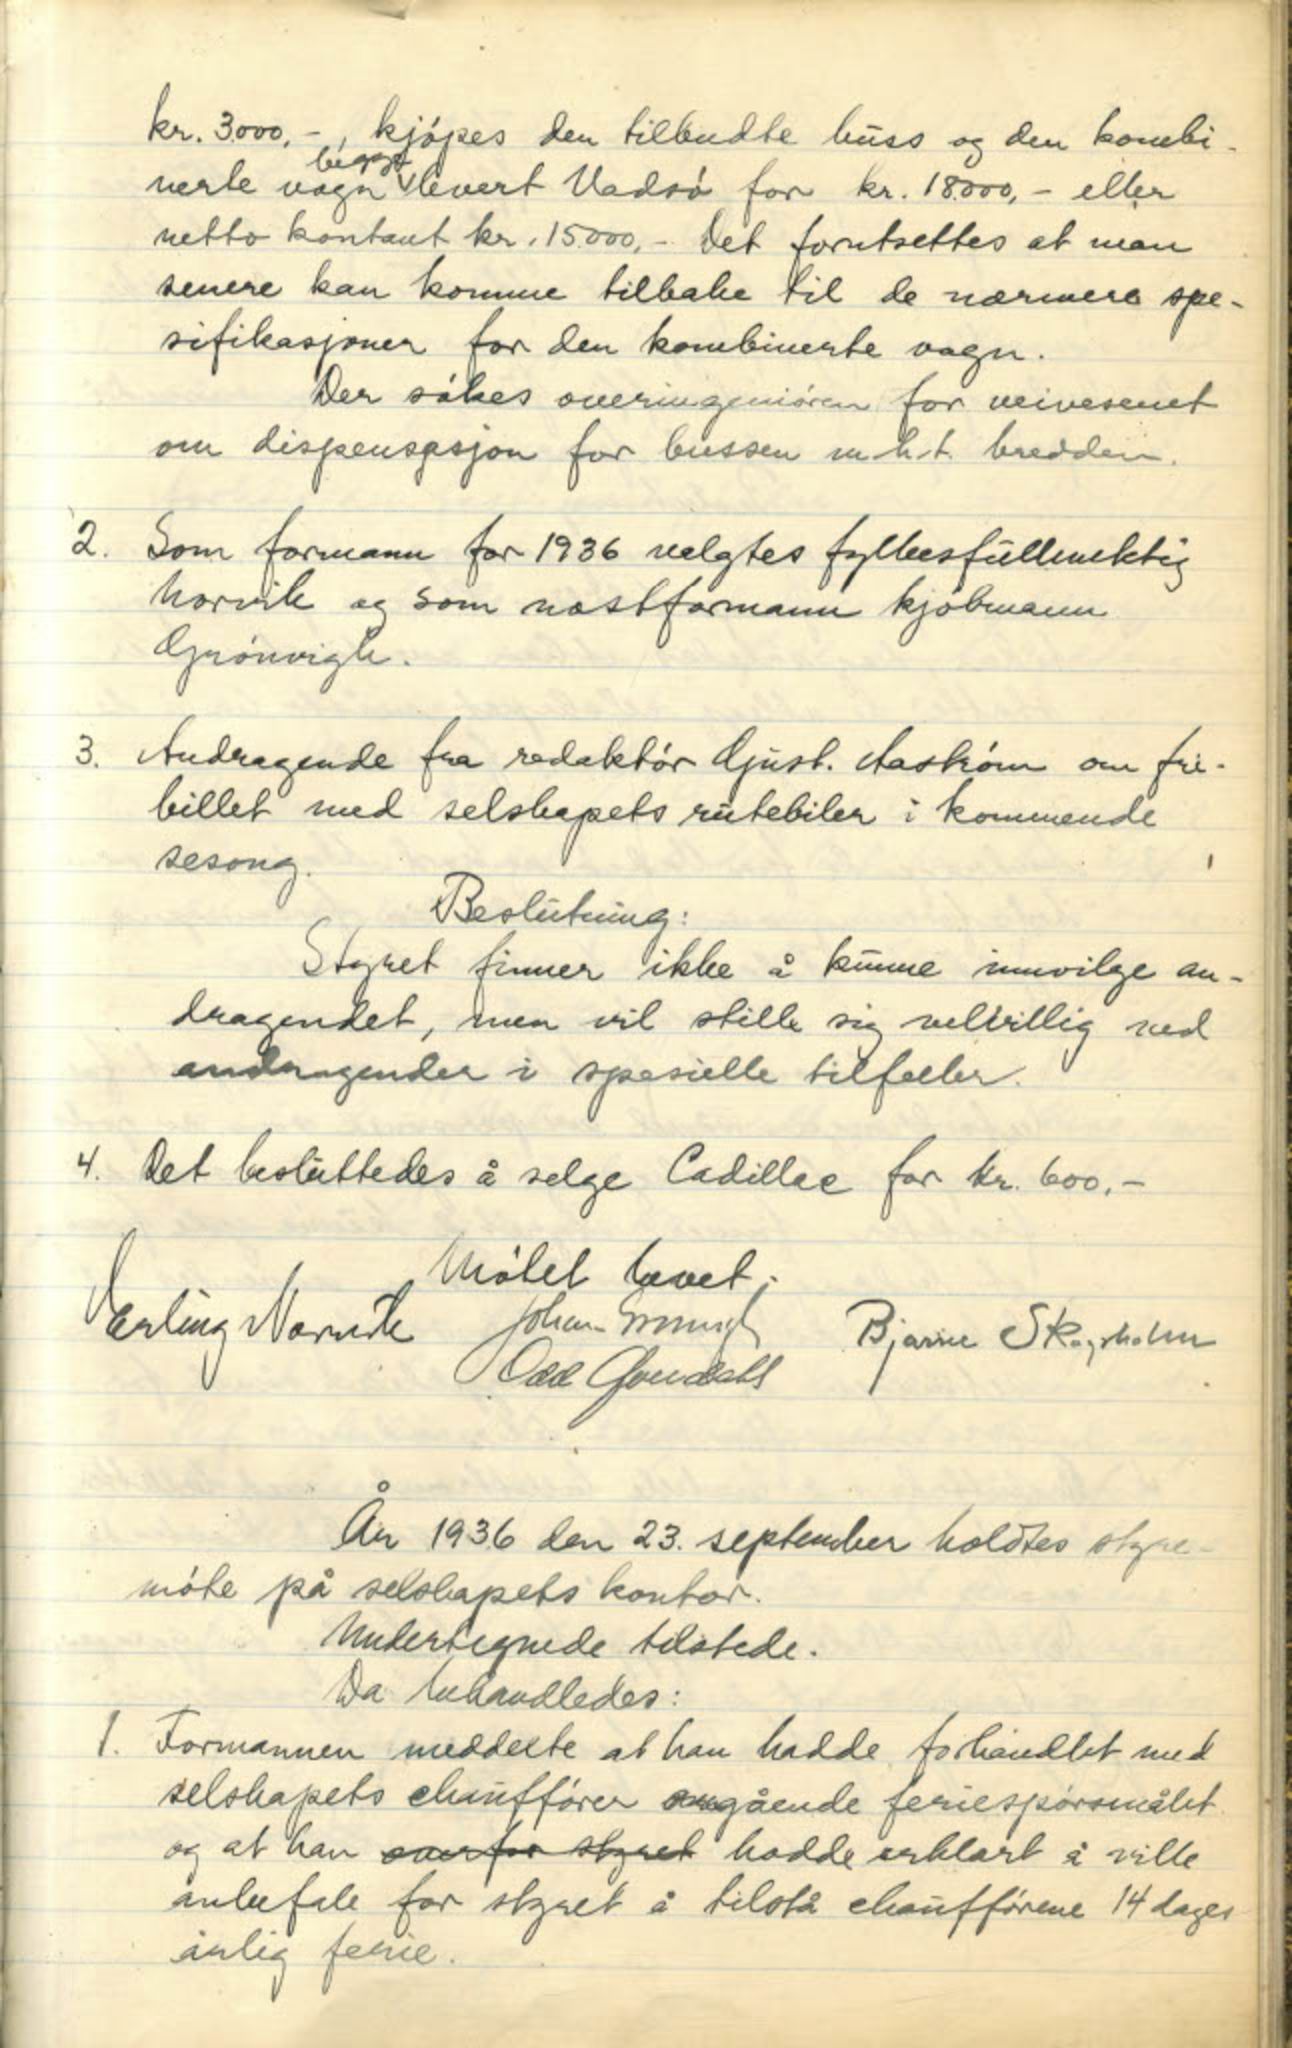 kr. 3000,-, kjöpes den tilbudte buss og den kombi-
nerte vogn begge levert Vadsö for kr. 18000,- eller
netto kontant kr. 15000,- Det forutsettes at man
senere kan komme tilbake til de nærmere spe-
sifikasjoner for den kombinerte vogn.
Der sökes overingeniören for veivesenet
om dispensasjon for bussen m.h.t. bredden.
2. Som formann for 1936 valgtes fylkesfullmektig
Norvik og som næstformann kjöbmann
Grönvigh.
3. Andragende fra redaktör Gjust. Aaström om fri-
billet med selskapets rutebiler i kommende
sesong.
Beslutning:
Styret finner ikke å kunne innvilge an-
dragendet, men vil stille sig velvillig ved
andragender i spesielle tilfeller.
4. Det besluttedes å selge Cadillac for kr. 600,-
Mötet hevet.
Erling Norvik Johan Bjarne Skogsholm
Odd
År 1936 den 23. september holdtes styre-
möte på selskapets kontor.
Undertegnede tilstede.
Da behandledes:
1. Formannen meddelte at han hadde forhandlet med
selskapets chaufförer angående feriespörsmålet
og at han overfor styret hadde erklært å ville
anbefale for styret å tilstå chaufförene 14 dages
årlig ferie.